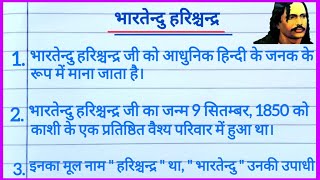 भारतेन्दु हरिश्चन्द्र
1. भारतेन्दु हरिश्चन्द्र जी को आधुनिक हिन्दी के जनक के
रूप में माना जाता है।
2. भारतेन्दु हरिश्चन्द्र जी का जन्म 9 सितम्बर, 1850 को
काशी के एक प्रतिष्ठित वैश्य परिवार में हुआ था।
3. इनका मूल नाम " हरिश्चन्द्र " था, " भारतेन्दु " उनकी उपाधी